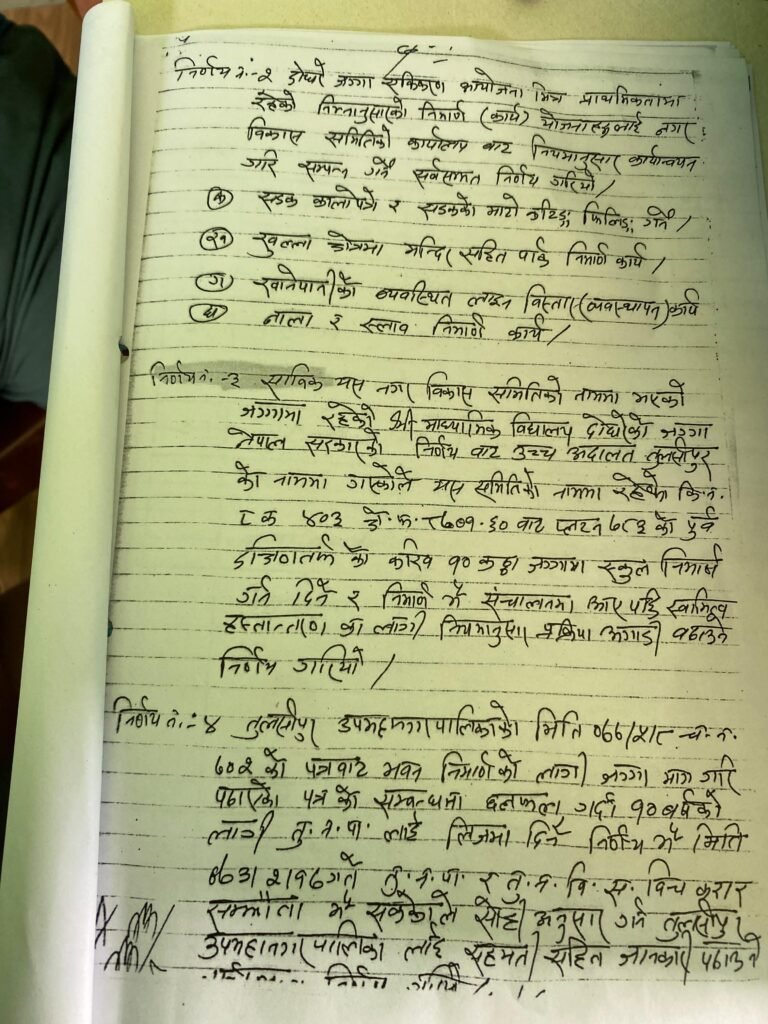 निर्णय नं.-२ दोघरे जग्गा एकिकरण कायोजना भित्र प्राथमिकतामा
रहेको निम्नानुसारको निर्माण (कार्य) योजनाहरुलाई नगर
विकास समितिको कार्यालय बाट नियमानुसार कार्यान्वयन
गरि सम्पन्न गर्ने सर्वसम्मत निर्णय गरियो/
(क) सडक कालोपत्रे र सडकको माटो कटिङ्ग फिलिङ्ग गर्ने/
(ख) खुल्ला क्षेत्रमा मन्दिर सहित पार्क निर्माण कार्य/
(ग) खानेपानीको व्यवस्थित लाइन विस्तार (व्यवस्थापन) कार्य
(घ) नाला र स्लाव निर्माण कार्य/
निर्णय नं.-३ साविक यस नगर विकास समितिको नाममा भएको
जग्गामा रहेको श्री माध्यामिक विद्यालय दोघरेको जग्गा
नेपाल सरकारको निर्णय बाट उच्च अदालत तुलसीपुर
को नाममा गएकोले यस समितिको नाममा रहेको कि.नं.
८क ४०३ बाट प्लटन ७८३ को पुर्व
दक्षिणतर्फ को करिव १० कठ्ठा जग्गामा स्कुल निर्माण
गर्न दिने र निर्माण भै संचालनमा आए पछि स्वामित्व
हस्तान्तरण का लागी नियमानुसार प्रक्रिया अगाडी बढाउने
निर्णय गरियो/
निर्णय नं.:-४ तुलसीपुर उपमहानगरपालिकाको मिति ०७७/२/८ च.नं.
७०२ को पत्रबाट भवन निर्माणको लागी जग्गा माग गरि
पठाएको पत्र को सम्बन्धमा छलफल गर्दा १० बर्षको
लागी तु.न.पा. लाई लिजमा दिने निर्णय भै मिति
०७३।२।१७ गते तु.न.पा. र तु.न.वि.स. बिच करार
सम्झौता भै सकेकोले सोही अनुसार गर्न तुलसीपुर
उपमहानगरपालिका लाई सहमती सहित जानकारी पठाउने
निर्णय गरियो/